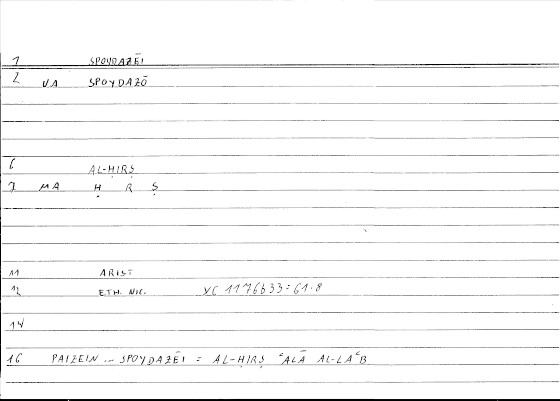 1 SPOYDAZĒI
2 VA SPOYDAZŌ
6 AL-ḤIRṢ
7 MA Ḥ R Ṣ
11 ARIST
12 ETH. NIC. YC 1176b33=61.8
14
16 PAIZEIN ... SPOYDAZĒI = AL-ḤIRṢ ʿALĀ AL-LAʿB